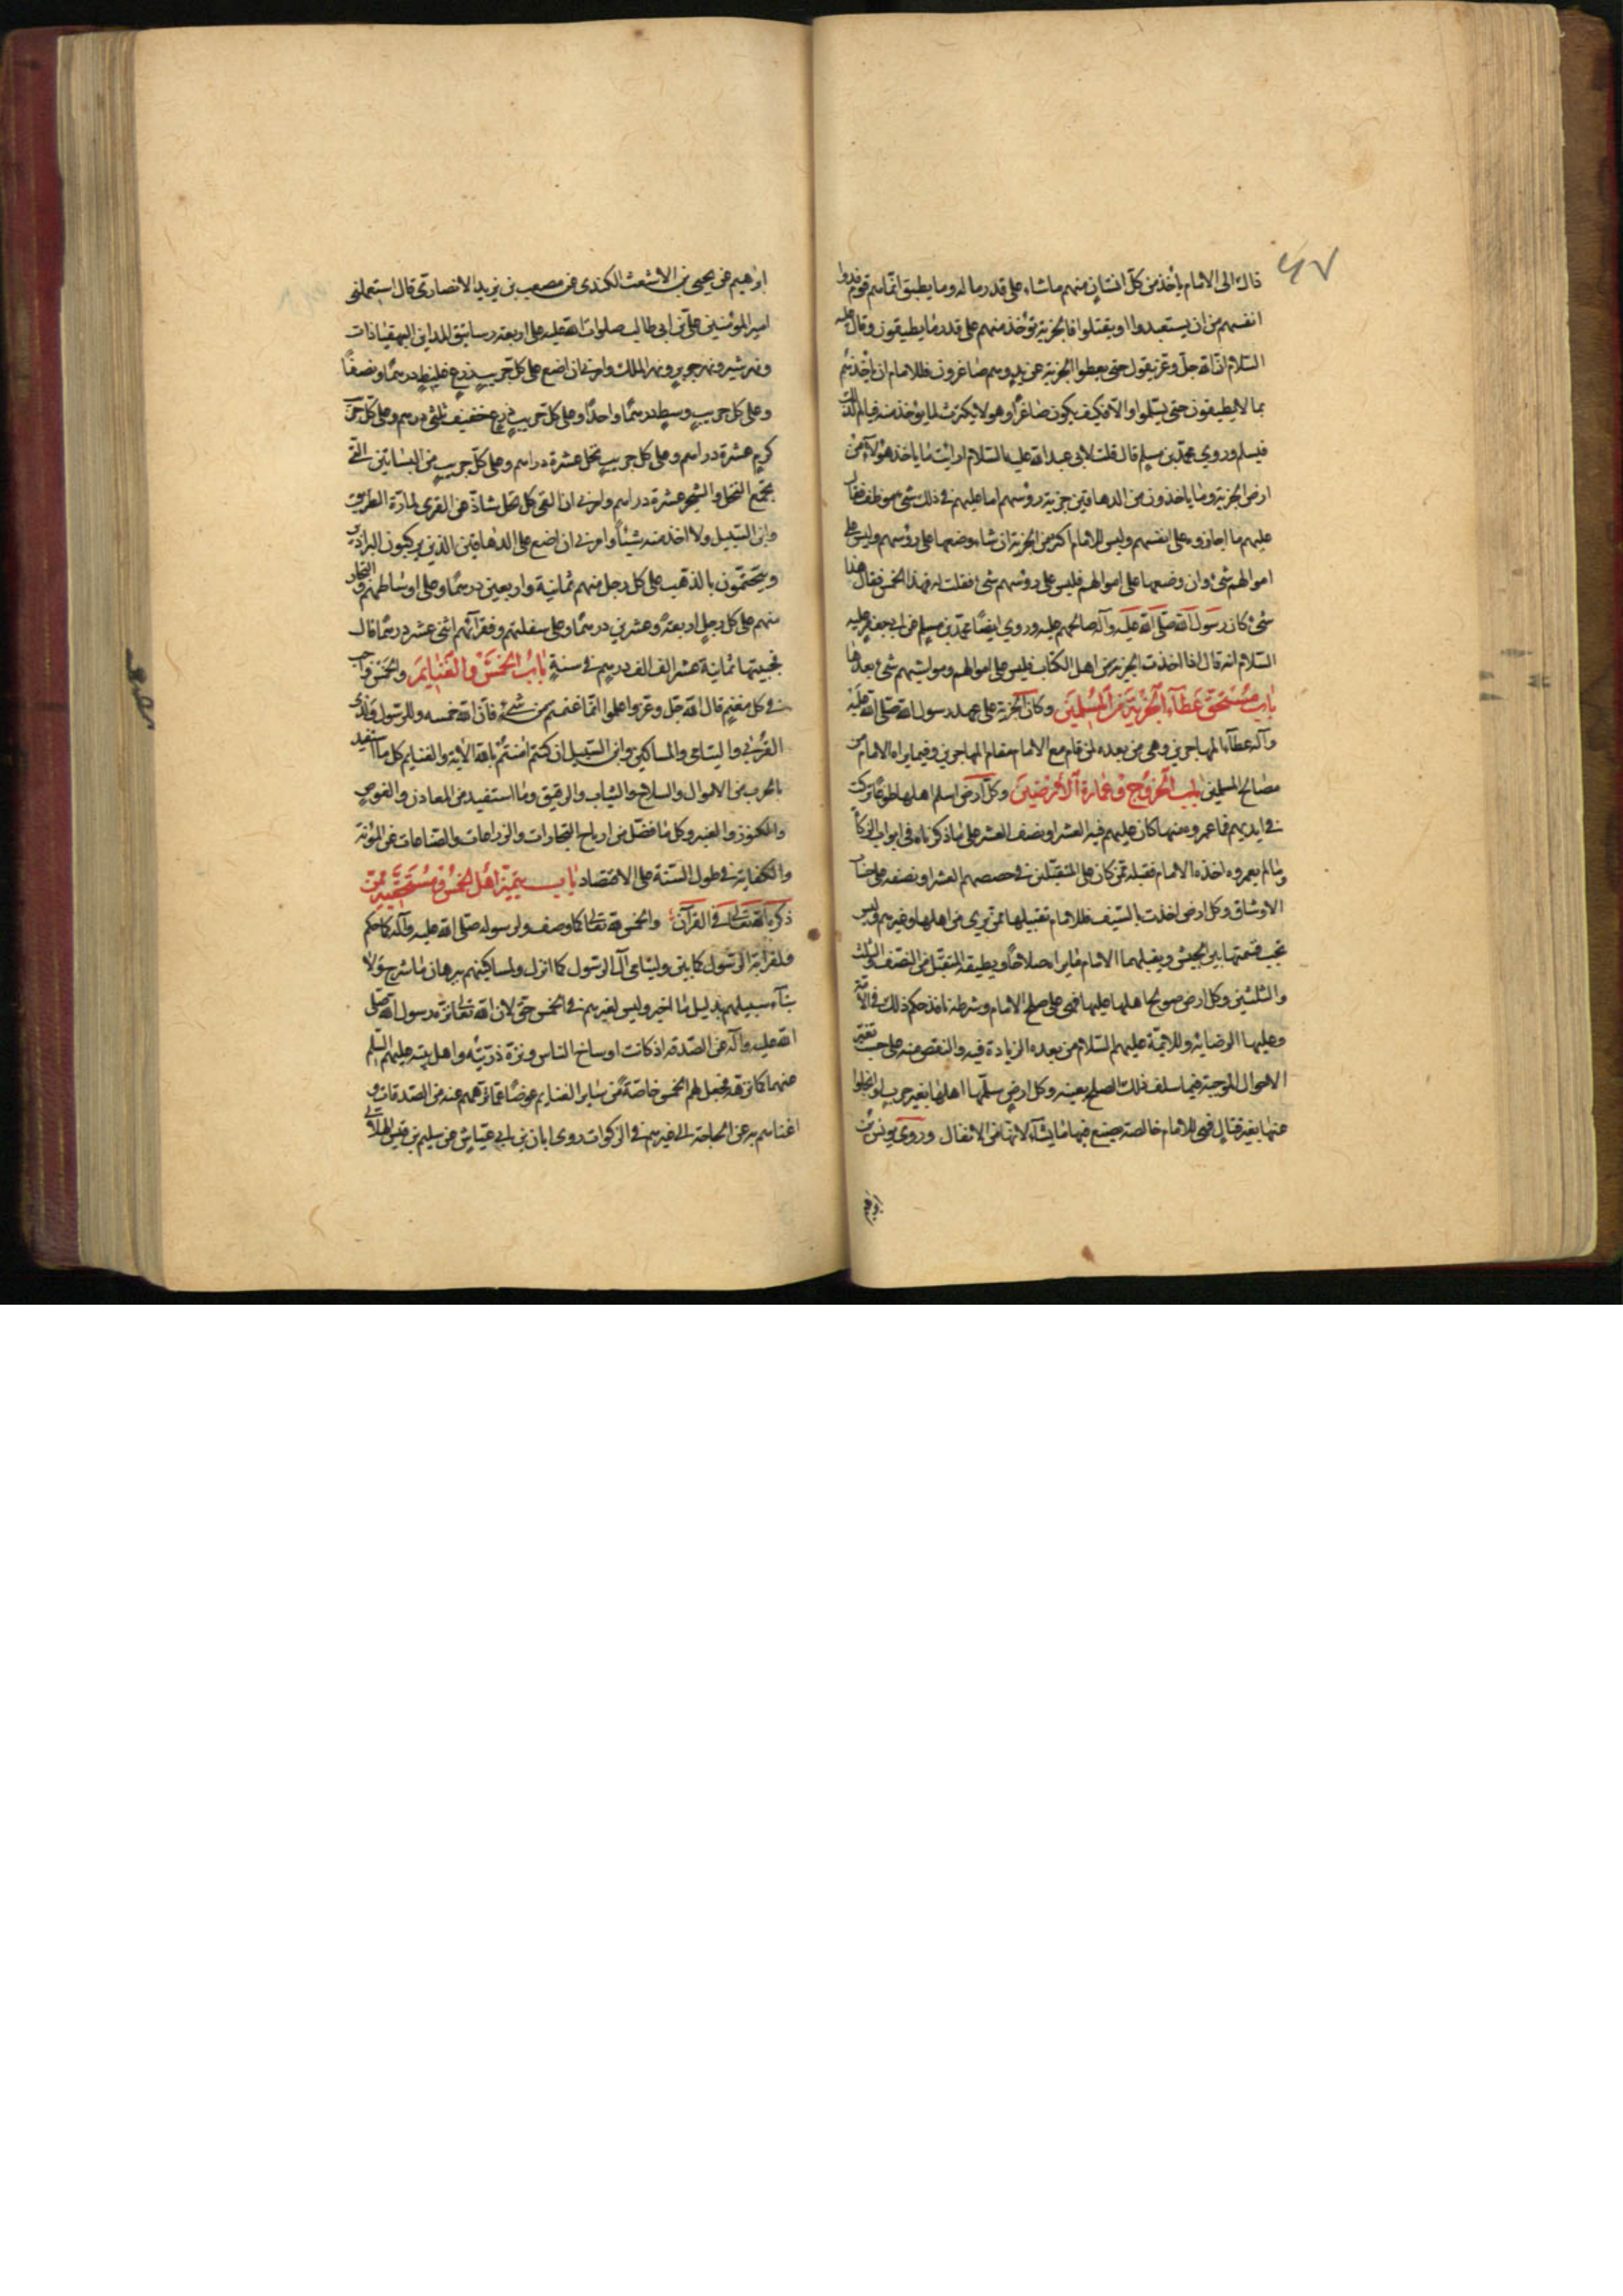 ۶۷
قال ذلك الى الامام يأخذ من كل انسان منهم ما شاء على قدر ماله وما يطيق انما هم قوم فدوا
انفسهم من ان يستعبدوا او يقتلوا فالجزية تؤخذ منهم على قدر ما يطيقون وقال عليه
السلام ان الله جل وعز يقول حتى يعطوا الجزية عن يد وهم صاغرون فللامام ان يأخذهم
بما لا يطيقون حتى يسلموا والا فكيف يكون صاغرا وهو لا يكترث لما يؤخذ منه فيألم لذلك
فيسلم وروى محمد بن مسلم قال قلت لابي عبد الله عليه السلام ارايت ما ياخذ هؤلاء من
ارض الجزية وما ياخذون من الدهاقين جزية رؤسهم اما عليهم في ذلك شئ موظف فقال
عليهم ما اجازوه على انفسهم وليس للامام اكثر من الجزية ان شاء وضعها على رؤسهم وليس على
اموالهم شئ وان وضعها على اموالهم فليس على رؤسهم شئ فقلت له فهذا الخمس فقال هذا
شئ كان رسول الله صلى الله عليه وآله صالحهم عليه وروى ايضا محمد بن مسلم عن ابي جعفر عليه
السلام انه قال اذا اخذت الجزية من اهل الكتاب فليس على اموالهم ومواشيهم شئ بعدها
باب مستحق عطاء الجزية من المسلمين وكان الجزية على عهد رسول الله صلى الله عليه
وآله عطاء المهاجرين وهي من بعده لمن قام مع الامام مقام المهاجرين وفيما يراه الامام من
مصالح المسلمين باب الخروج وعمارة الارضين وكل ارض اسلم اهلها طوعا تركت
في ايديهم فما عمروه منها كان عليهم فيه العشر او نصف العشر على ما ذكرناه في ابواب الزكاة
وما لم يعمروه اخذه الامام فقبله ممن كان على المتقبلين في حصصهم العشر او نصفه على حساب
الاوساق وكل ارض اخذت بالسيف فللامام تقبيلها ممن يرى من اهلها وغيرهم وليس
تجب قسمتها بين الجيش ويقبلها الامام بما يراه صلاحا ويطيقه المتقبل من النصف والثلث
والثلثين وكل ارض صولح اهلها عليها فهي على صلح الامام وشرطه نافذ حكم ذلك في الامة
وعليها الرضا به وللائمة عليهم السلام من بعده الزيادة فيه والنقص منه على حسب تغير
الاحوال الموجبة فيما سلف ذلك الصلح بعينه وكل ارض سلمها اهلها بغير حرب او انجلوا
عنها بغير قتال فهي للامام خالصة يصنع فيها ما يشاء لانها من الانفال وروى يونس بن
ابرهيم
ابرهيم عن يحيى بن الاشعث الكندي عن مصعب بن يزيد الانصاري قال استعملني
امير المؤمنين علي بن ابي طالب صلوات الله عليه على اربعة رساتيق المداين البهقياذات
ونهر شير ونهر جوير ونهر الملك وامرني ان اضع على كل جريب زرع غليظ درهما ونصفا
وعلى كل جريب وسط درهما واحدا وعلى كل جريب زرع خفيف ثلثي درهم وعلى كل جريب
كرم عشرة دراهم وعلى كل جريب نخل عشرة دراهم وعلى كل جريب من البساتين التي
تجمع النخل والشجر عشرة دراهم وامرني ان القي كل نخل شاذ عن القرى لمارة الطريق
وابن السبيل ولا اخذ منه شيئا وامرني ان اضع على الدهاقين الذين يركبون البراذين
ويتختمون بالذهب على كل رجل منهم ثمانية واربعين درهما وعلى اوساطهم والتجار
منهم على كل رجل اربعة وعشرين درهما وعلى سفلتهم وفقرائهم اثني عشر درهما قال
فجبيتها ثمانية عشر الف الف درهم في سنة باب الخمس والغنايم والخمس واجب
في كل مغنم قال الله جل وعز واعلموا انما غنمتم من شئ فان لله خمسه وللرسول ولذي
القربى واليتامى والمساكين وابن السبيل ان كنتم امنتم بالله الآية والغنايم كل ما استفيد
بالحرب من الاموال والسلاح والثياب والرقيق وما استفيد من المعادن والغوص
والكنوز والعنبر وكل ما فضل من ارباح التجارات والزراعات والصناعات عن المؤنة
والكفاية في طول السنة على الاقتصاد باب تمييز اهل الخمس ومستحقيه ممن
ذكره الله تعالى في القرآن والخمس لله تعالى كما وصف ولرسوله صلى الله عليه وآله كما حكم
ولقرابة الرسول كما بين وليتامى آل الرسول كما انزل ولمساكينهم ببرهان ما شرح ولأ
بناء سبيلهم بدليل ما اخبر وليس لغيرهم في الخمس حق لان الله تعالى نزه رسول الله صلى
الله عليه وآله عن الصدقة اذ كانت اوساخ الناس ونزه ذريته واهل بيته عليهم السلم
عنها كما نزهه فجعل لهم الخمس خاصة من ساير الغنايم عوضا عما نزههم عنه من الصدقات و
اغناهم به عن الحاجة الى غيرهم في الزكوات روى ابان بن ابي عياش عن سليم بن قيس الهلالي